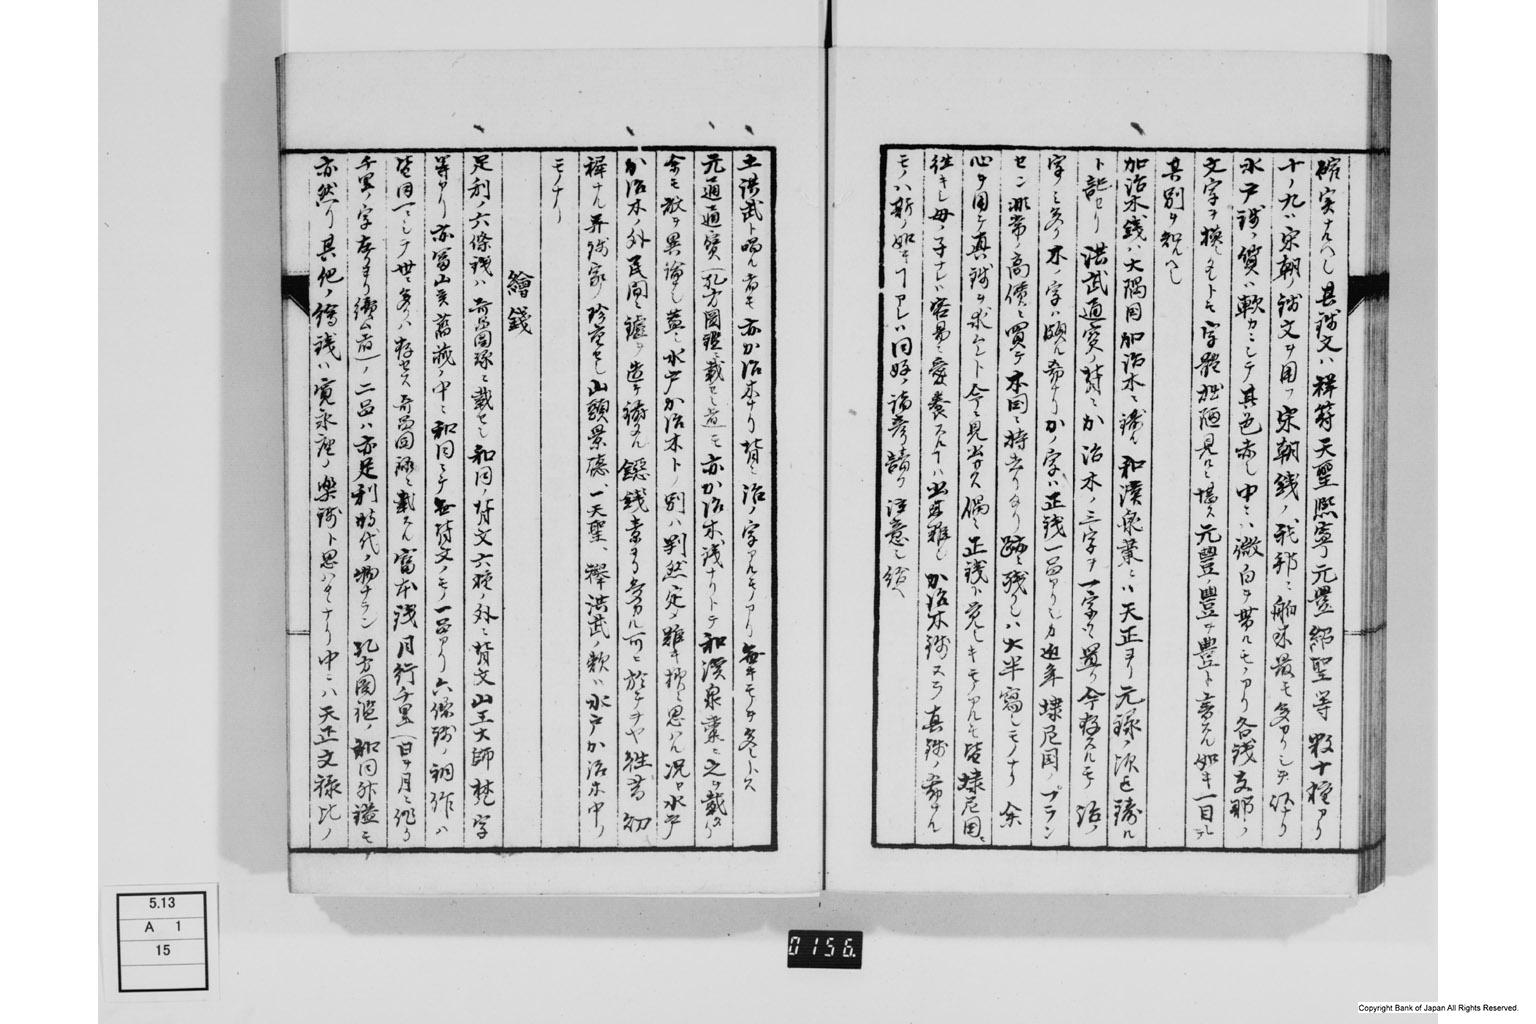 確実ナルヘシ其銭文ハ祥符天聖熈寧元豊紹聖等数十種アリ
十ノ九ハ宋朝ノ銭文ヲ用フ宋朝銭ノ我邦ニ舶来最モ多カリシヲ
水戸銭ノ質ハ軟カニシテ其色赤シ中ニハ微白ヲ帯ルモノアリ各銭支那ノ
文字ヲ模スルモ字體拙陋見ルニ堪ス元豊ノ豊ヲ豊ト書スル如キ一目
其別ヲ知ルヘシ
加治木銭ハ大隅国加治木ニ鋳ル和漢泉彙ニハ天正ヨリ元禄ノ頃迄鋳ル
ト記セリ洪武通宝ノ背ニか治木ノ三字ヲ一字ツヽ置ク今存スルモ治ノ
字ノミ多ク木ノ字ハ頗ル希ナリかノ字ハ正銭一品アリシカ近年墺尼国ノブラン
セン非常ノ高價ニ買テ本国ニ持去リタリ跡ニ残リシハ大半寫シモノナリ余
心ヲ用ヒ真銭ヲ求ムト今ニ見出サス偶ニ正銭ト覚シキモノアルモ皆墺尼国ニ
徃キシ母ノ子ナレハ容易ニ愛養スルハ出来難シか治木銭スラ真銭ノ希ナル
モノハ斯ノ如キアレハ同好ノ諸彦請フ注意シ給ヘ
五洪武ト唱ル者モ亦か治木ナリ背ニ治ノ字アルモノアリ無キモノヲ多シトス
元通通寳(孔方図鑑ニ載セシ者)モ亦か治木銭ナリトテ和漢泉彙ニ之ヲ載タリ
余モ敢テ異論ナシ蓋シ水戸か治木トノ別ハ判然定メ難キ様ニ思ハル况ヤ水戸
か治木ノ外民間ニ鑪ヲ造テ鋳タル鐚銭素ヨリ多カル可キニ於テヲヤ徃昔ノ初
禅ナル弄銭家ノ珍重セシ山頭景徳、一天聖、擧洪武ノ類ハ水戸か治木中ノ
モノナリ
繪錢
足利ノ六條銭ハ奇品図録ニ載セシ和同ノ背文六種ノ外ニ背文山王大師梵字
等アリ亦富山矦舊蔵ノ中ニ和同ニテ無背文ノモノ一品アリ六條銭ノ銅作ハ
皆同一ニシテ世ニ多クハ存セス奇品図録ニ載スル富本銭月行千里(日ヲ月ニ作リ
千里ノ字左ヨリ續ム者)ノ二品ハ亦足利時代ノ物ナラン孔方図鑑ノ和同
亦然リ其他ノ繪銭ハ寛永座ノ楽銭ト思ハルヽナリ中ニハ天正文禄比ノ
5.13
A 1
15
0156.
Copyright Bank of Japan All Rights Reserved.